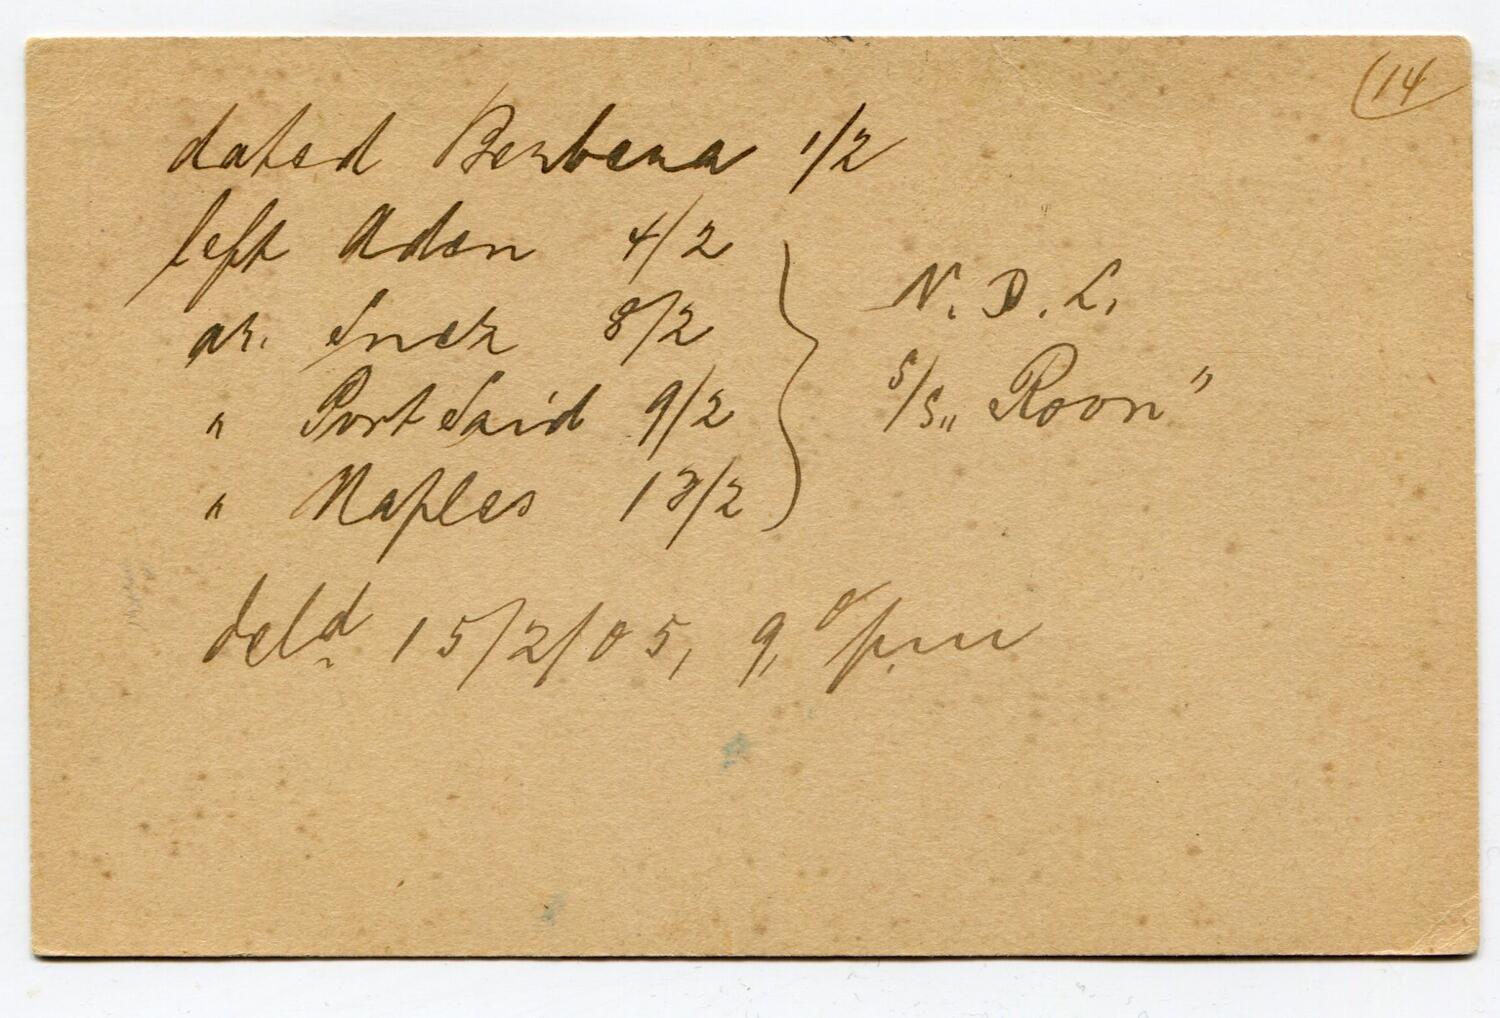 (14
dated Berbera 1/2
left Aden 4/2
ar. Suez 8/2
" Port Said 9/2
" Naples 13/2
N. D. L.
S/S „Roon"
deld. 15/2/05, 9, o/p.m